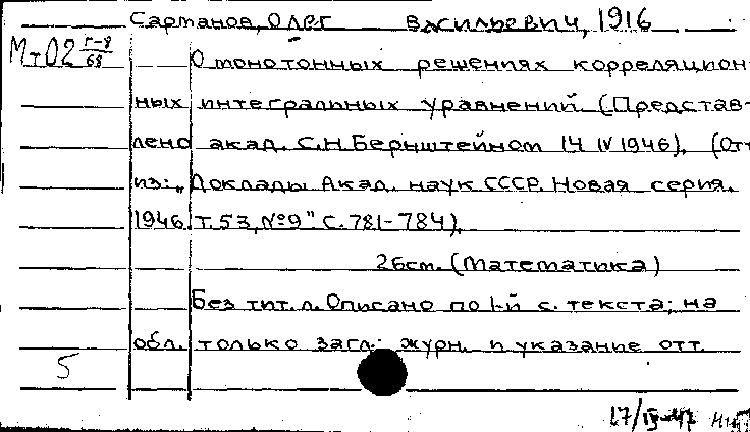 Сарманов, Олег Васильевич, 1916
М-02 г-8/68
О монотонных решениях корреляцион-
ных интегральных уравнений. (Представ-
лено акад. С.Н.Бернштейном 14 IV 1946). (Отт.
из: „Доклады Акад. наук СССР. Новая серия.
1946. Т.53, №9" С. 781-784).
26см. (Математика)
Без тит. л. Описано по 1-й с. текста; на
обл. только загл. журн. и указание отт.
5